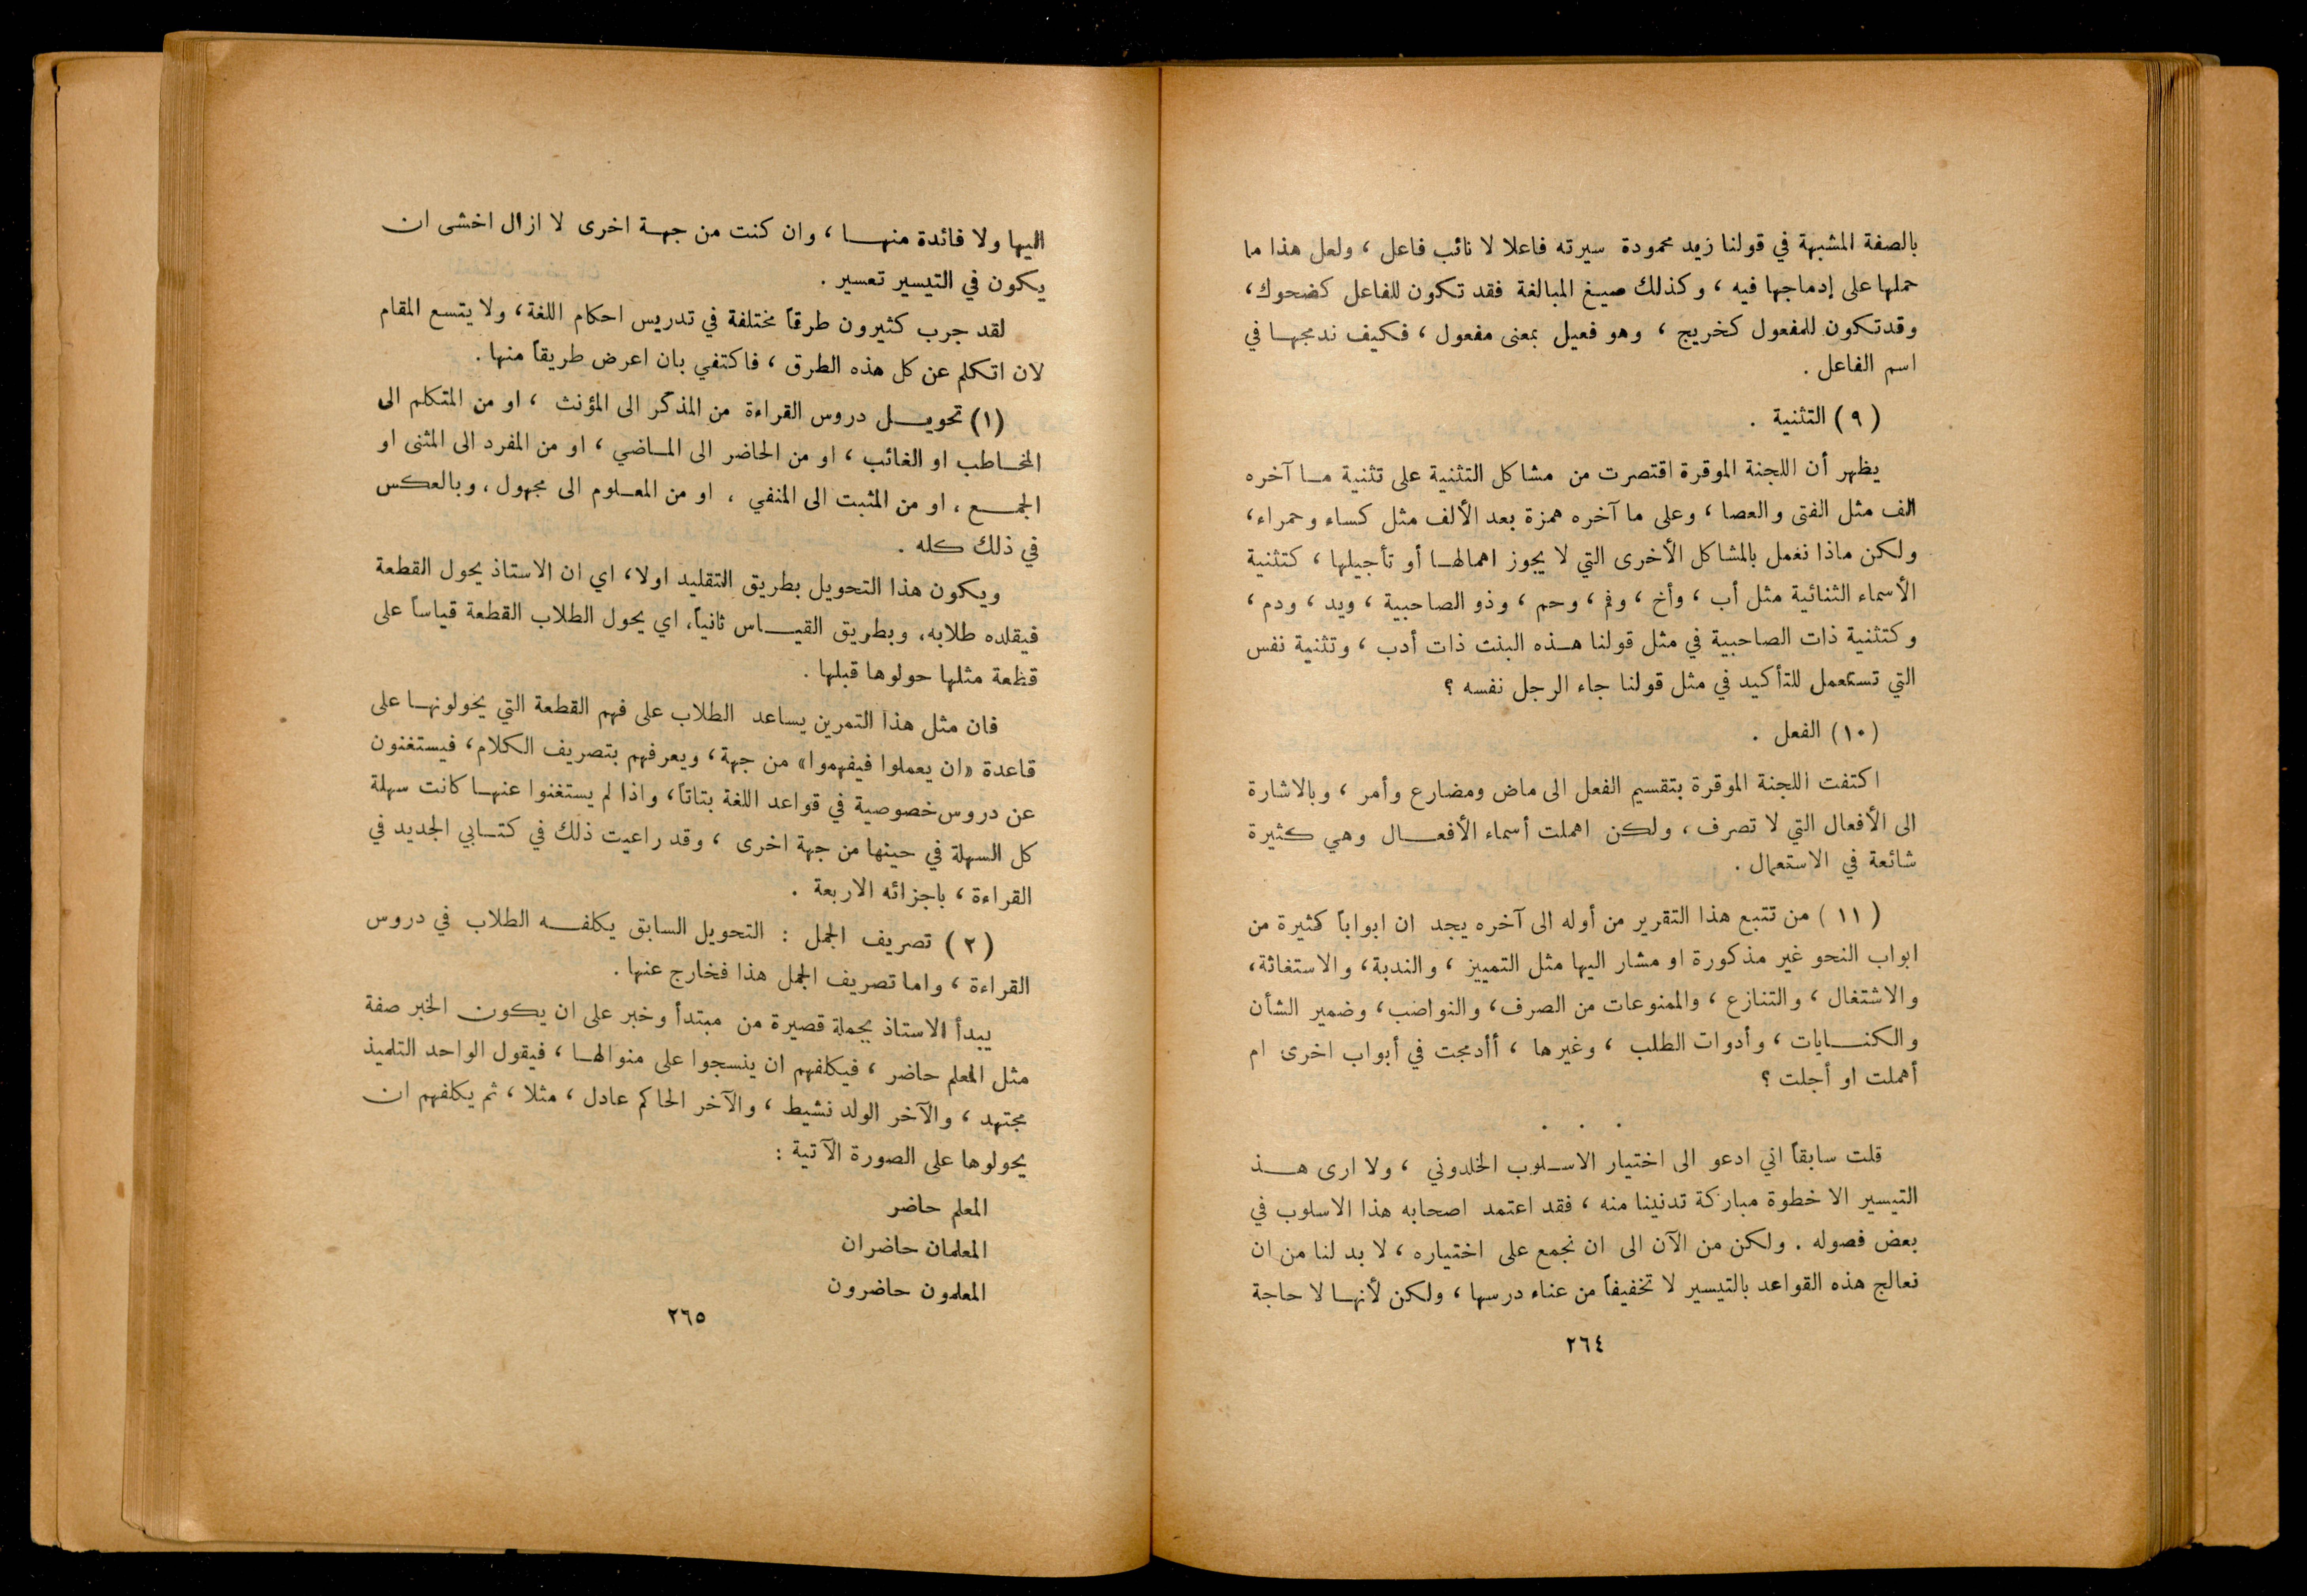 بالصفة المشبهة في قولنا زيد محمودة سيرته فاعلا لا نائب فاعل ، ولعل هذا ما
حملها على إدماجها فيه ، وكذلك صيغ المبالغة فقد تكون للفاعل كضحوك،
وقدتكون للمفعول كخريج ، وهو فعيل بمعنى مفعول ، فكيف ندمجها في
اسم الفاعل .
( ٩ ) التثنية .
يظهر أن اللجنة الموقرة اقتصرت من مشاكل التثنية على تثنية ما آخره
الف مثل الفتى والعصا ، وعلى ما آخره همزة بعد الألف مثل كساء وحمراء،
ولكن ماذا نعمل بالمشاكل الأخرى التي لا يجوز اهمالها أو تأجيلها ، كتثنية
الأسماء الثنائية مثل أب ، وأخ ، وفم ، وحم ، وذو الصاحبية ، ويد ، ودم ،
وكتثنية ذات الصاحبية في مثل قولنا هذه البنت ذات أدب ، وتثنية نفس
التي تستعمل للتأكيد في مثل قولنا جاء الرجل نفسه ؟
(١٠) الفعل .
اكتفت اللجنة الموقرة بتقسيم الفعل الى ماض ومضارع وأمر ، وبالاشارة
الى الأفعال التي لا تصرف ، ولكن اهملت أسماء الأفعال وهي كثيرة
شائعة في الاستعمال .
( ١١ ) من تتبع هذا التقرير من أوله الى آخره يجد ان ابواباً كثيرة من
ابواب النحو غير مذكورة او مشار اليها مثل التمييز ، والندبة، والاستغاثة،
والاشتغال ، والتنازع ، والممنوعات من الصرف، والنواصب، وضمير الشأن
والكنايات ، وأدوات الطلب ، وغيرها ، أأدمجت في أبواب اخرى ام
أهملت او أجلت ؟
. . .
قلت سابقاً اني ادعو الى اختيار الاسلوب الخلدوني ، ولا ارى هذ
التيسير الا خطوة مباركة تدنينا منه ، فقد اعتمد اصحابه هذا الاسلوب في
بعض فصوله . ولكن من الآن الى ان نجمع على اختياره ، لا بد لنا من ان
نعالج هذه القواعد بالتيسير لا تخفيفاً من عناء درسها ، ولكن لأنها لا حاجة
٢٦٤
اليها ولا فائدة منها ، وان كنت من جهة اخرى لا ازال اخشى ان
يكون في التيسير تعسير .
لقد جرب كثيرون طرقاً مختلفة في تدريس احكام اللغة، ولا يتسع المقام
لان اتكلم عن كل هذه الطرق ، فاكتفي بان اعرض طريقاً منها .
(١) تحويل دروس القراءة من المذكر الى المؤنث ، او من المتكلم الى
المخاطب او الغائب ، او من الحاضر الى الماضي ، او من المفرد الى المثنى او
الجمع ، او من المثبت الى المنفي ، او من المعلوم الى مجهول ، وبالعكس
في ذلك كله .
ويكون هذا التحويل بطريق التقليد اولا، اي ان الاستاذ يحول القطعة
فيقلده طلابه، وبطريق القياس ثانياً، اي يحول الطلاب القطعة قياساً على
قطعة مثلها حولوها قبلها .
فان مثل هذا التمرين يساعد الطلاب على فهم القطعة التي يحولونها على
قاعدة «ان يعملوا فيفهموا» من جهة، ويعرفهم بتصريف الكلام، فيستغنون
عن دروس خصوصية في قواعد اللغة بتاتاً، واذا لم يستغنوا عنها كانت سهلة
كل السهلة في حينها من جهة اخرى ، وقد راعيت ذلك في كتابي الجديد في
القراءة ، باجزائه الاربعة .
( ٢ ) تصريف الجمل : التحويل السابق يكلفه الطلاب في دروس
القراءة ، واما تصريف الجمل هذا فخارج عنها .
يبدأ الاستاذ بجملة قصيرة من مبتدأ وخبر على ان يكون الخبر صفة
مثل المعلم حاضر ، فيكلفهم ان ينسجوا على منوالها ، فيقول الواحد التلميذ
مجتهد ، والآخر الولد نشيط ، والآخر الحاكم عادل ، مثلا ، ثم يكلفهم ان
يحولوها على الصورة الآتية :
المعلم حاضر
المعلمان حاضران
المعلمون حاضرون
٢٦٥